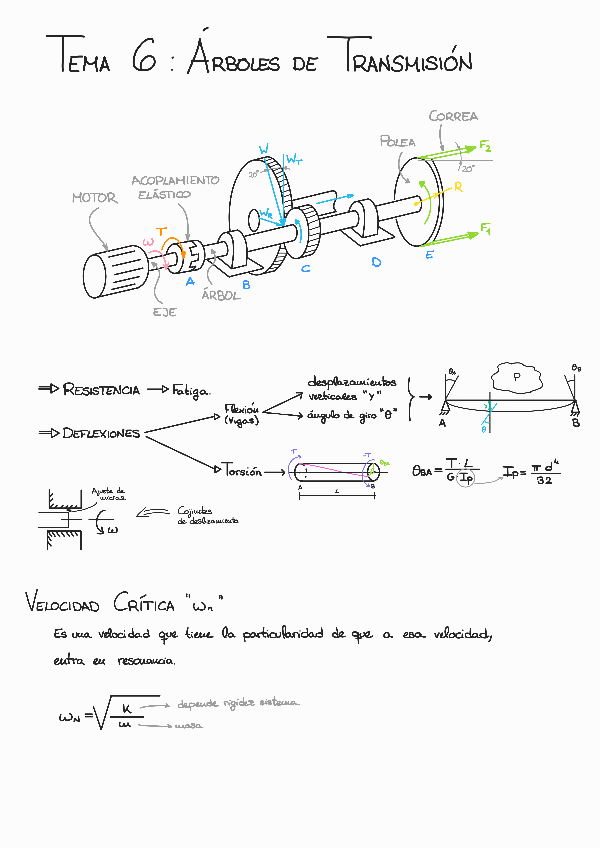 Tema 6 : Árboles de Transmisión
CORREA
POLEA
F2
20°
W
WT
20°
ACOPLAMIENTO
ELÁSTICO
MOTOR
R
WR
T
ω
F1
A
B
C
D
E
ÁRBOL
EJE
⇒ RESISTENCIA → Fatiga.
⇒ DEFLEXIONES
Flexión
(Vigas)
desplazamientos
verticales "y"
ángulo de giro "θ"
P
θA
θB
A
B
θ
Torsión
T
-T
θBA
A
B
L
θBA = T · L / G Ip
Ip = π d⁴ / 32
Ajuste de
ω
Cojinetes
de deslizamiento
VELOCIDAD CRÍTICA "ωn"
Es una velocidad que tiene la particularidad de que a esa velocidad,
entra en resonancia.
ωN = √ K / m
depende rigidez sistema
masa